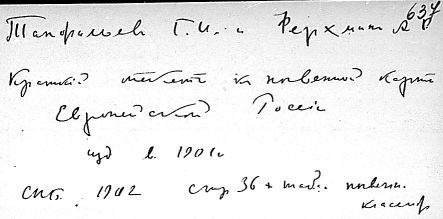 637
Танфильев Г.И. и Ферхмин А Р
Краткий текст к почвенной карте
Европейской Россіи
изд в. 1901г
СПб. 1902 стр 36 + таб. почвен.
классиф